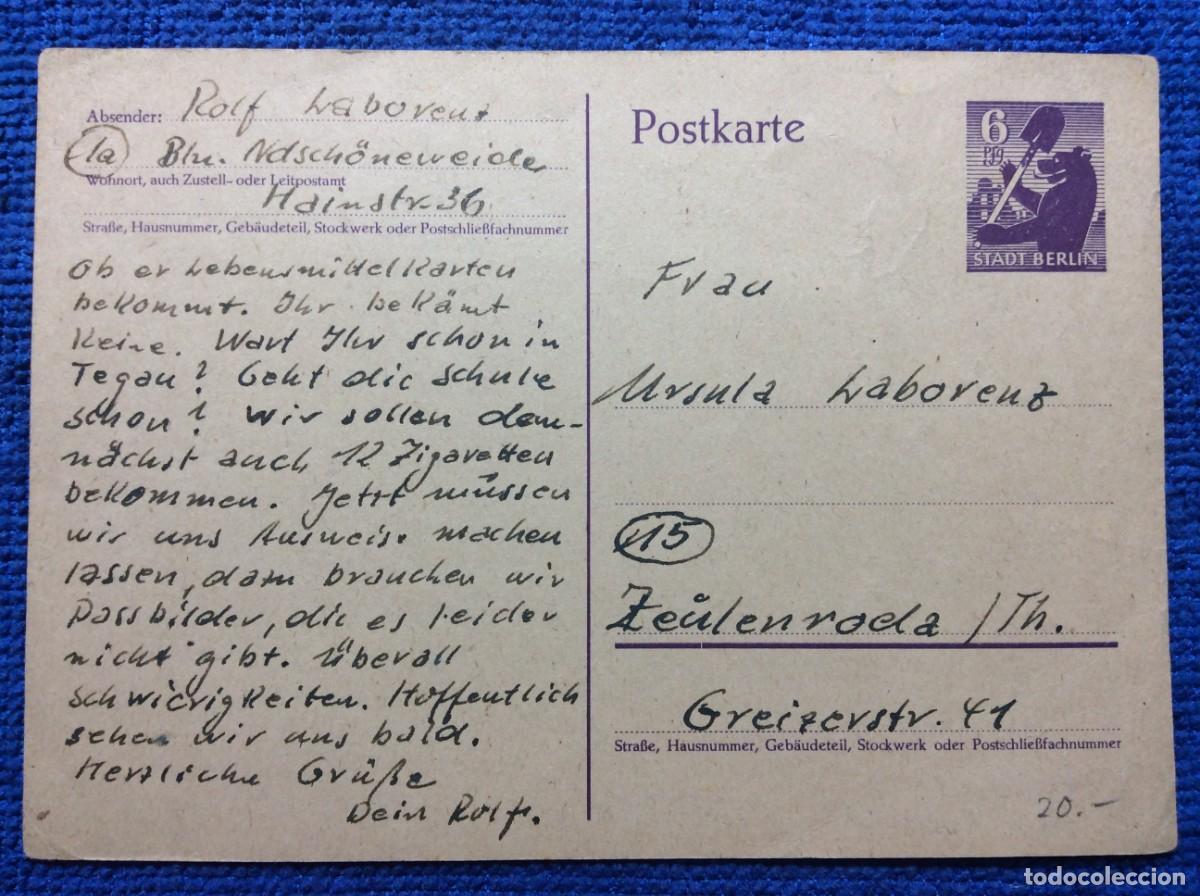 Absender: Rolf Laborenz
1a Bln. Ndschöneweide
Wohnort, auch Zustell- oder Leitpostamt
Hainstr. 36
Straße, Hausnummer, Gebäudeteil, Stockwerk oder Postschließfachnummer
Ob er Lebensmittelkarten
bekommt. Ihr bekämt
keine. Wart Ihr schon in
Tegau? Geht die Schule
schon? Wir sollen dem-
nächst auch 12 Zigaretten
bekommen. Jetzt müssen
wir uns Ausweise machen
lassen, dazu brauchen wir
Passbilder, die es leider
nicht gibt. Überall
Schwierigkeiten. Hoffentlich
sehen wir uns bald.
Herzliche Grüße
Dein Rolf.
Postkarte
6
Pfg
STADT BERLIN
Frau
Ursula Laborenz
15
Zeulenroda /Th.
Greizerstr. 41
Straße, Hausnummer, Gebäudeteil, Stockwerk oder Postschließfachnummer
20.-
todocoleccion